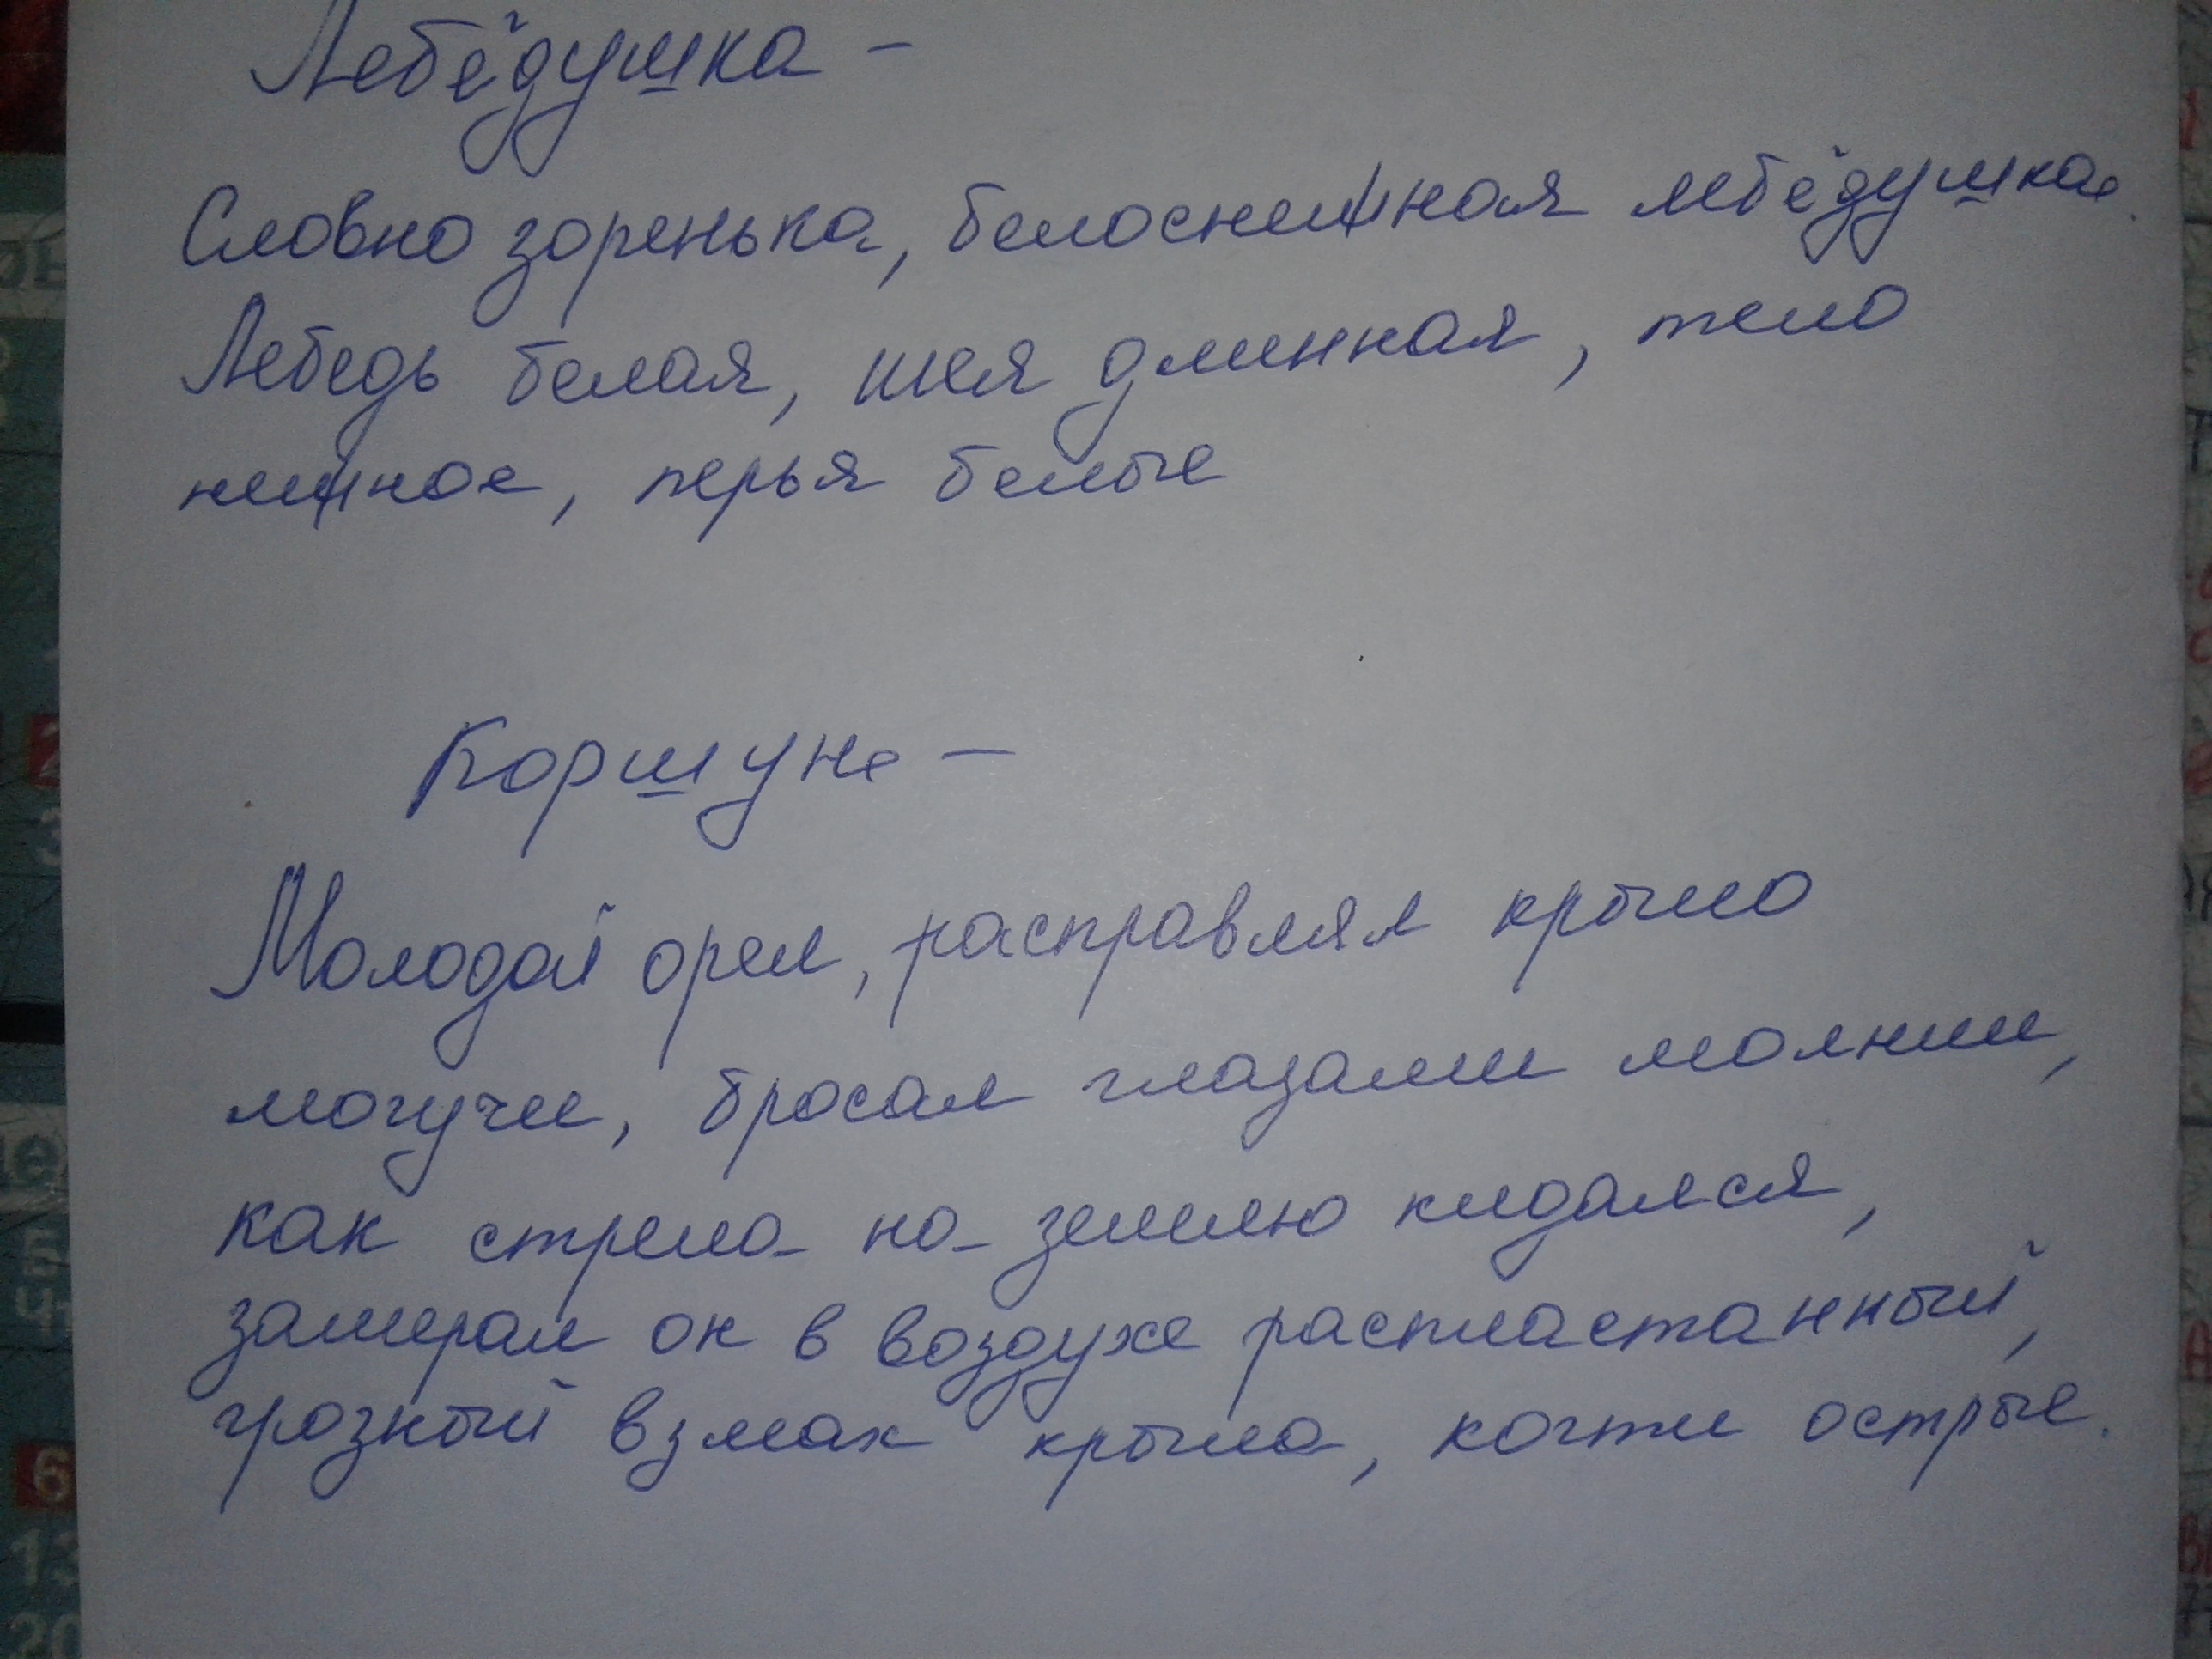 Лебёдушка –
Словно зоренька, белоснежная лебёдушка.
Лебедь белая, шея длинная, тело
нежное, перья белые
Коршун –
Молодой орел, расправлял крыло
могучее, бросал глазами молнии,
как стрела на землю кидался,
замерал он в воздухе распластанный,
грозный взмах крыла, когти острые.